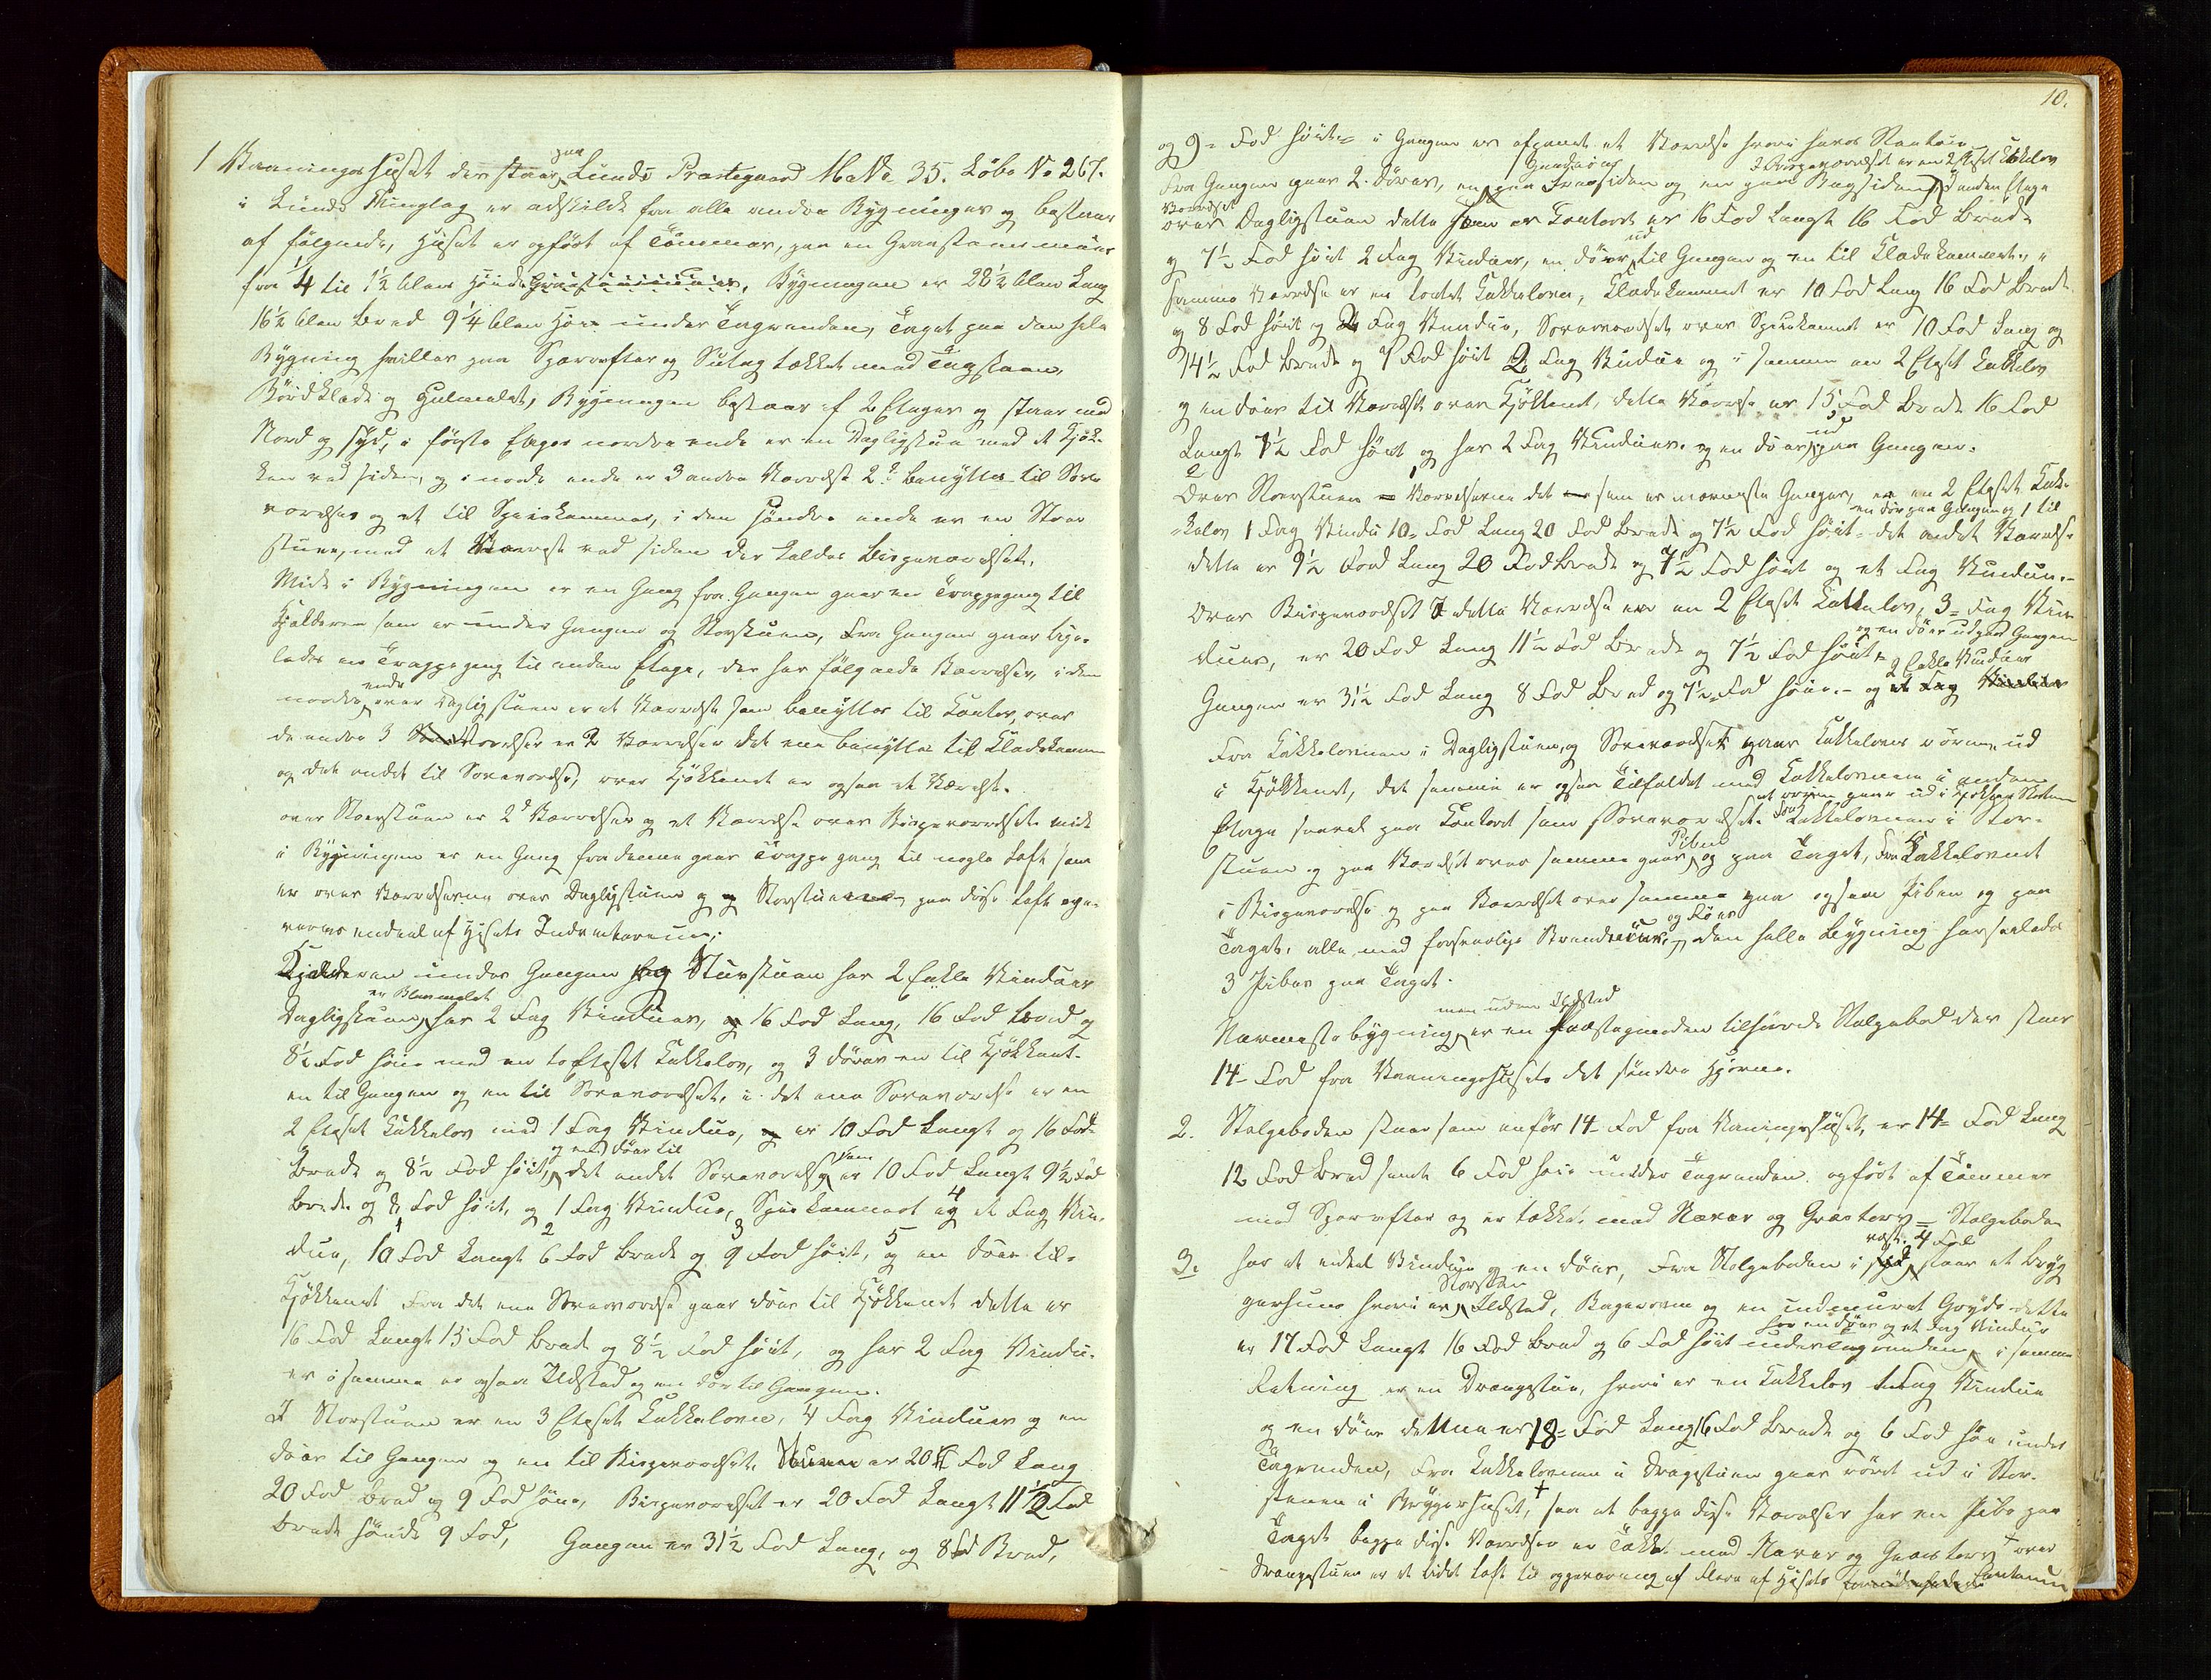 1 Vaaningshuset der staar paa Lunds Præstegaard M. No 35. Løbe No 267.
i Lunds Thinglag er adskildt fra alle andre Bygninger og bestaar
af følgende, Huset er opført af Tømmer, paa en Graasteensmuur
fra 1/4 til 1 1/2 Alens Høide. Bygningen er 28 1/2 Alen Lang
16 1/2 Alen Bred 9 1/4 Alen Høi under Tagranden, Taget paa den hele
Bygning hviller paa Sperrefter og Sutag tækket med Tagsteen,
Bordklædt og Guulmalet, Bygningen bestaar af 2 Etager og staar ved
Nord og Syd, i første Etage nordre ende er en Dagligstue med et Kjøk-
ken ved siden, og i nordre ende er 3 andre Værelser 2de benyttes til Sove
værelser og et til Spisekammer, i den søndre ende er en Stor
stue, med et Værelse ved siden der kaldes Bispeværelset.
Midt i Bygningen er en Gang fra Gangen gaar en Trappegang til
Kjelderen som er under Gangen og Storstuen, Fra Gangen gaar lige-
ledes en Trappegang til anden Etage, der har følgende Værelser, i den
nordre ende over Dagligstuen er et Værelse som benyttes til Kontor, over
de andre 3 Værelser er 2 Værelser det ene benyttes til Klædekammer
og det andet til Soveværelse, over Kjøkkenet er ogsaa et Værelse.
over Storstuen er 2de Værelser og et Værelse over Bispeværelset midt
i Bygningen er en Gang fra denne gaar Trappegang til nogle Loft som
er over Værelserne over Dagligstuen og Storstuen paa disse Loft opbe-
vares endeel af Husets Indventarium;
Kjelderen under Gangen og Storstuen har 2 Enkle Vinduer
Dagligstuen er Blaamalet har 2 Fag Vinduer, 16 Fod Lang, 16 Fod bred og
8 1/2 Fod høi med en to Etages Kakkelov, og 3 døre en til Kjøkkenet.
en til Gangen og en til Soveværelset, i det ene Soveværelse er en
2 Etages Kakkelov med 1 Fag Vindue, er 10 Fod Langt og 16 Fod
Bredt og 8 1/2 Fod høit, og en døer til det andet Soveværelse som er 10 Fod Langt 9 1/2 Fod
Bredt og 8 Fod høit, og 1 Fag Vindue, Spisekammeret og et Fag Vin-
due, 10 Fod Langt 6 Fod Bredt og 9 Fod høit, og en døer til
Kjøkkenet Fra det ene Soveværelse gaar døer til Kjøkkenet dette er
16 Fod Langt 15 Fod Bredt og 8 1/2 Fod høit, og har 2 Fag Vindu-
er i samme er ogsaa Ildsted og en dør til Gangen.
I Storstuen er en 3 Etages Kakkelovn, 4 Fag Vinduer og en
døer til Gangen og en til Bispeværelset. Stuen er 20 Fod Lang
20 Fod Bred og 9 Fod høi, Bispeværelset er 20 Fod Langt 11 1/2 Fod
Bredt høide 9 Fod, Gangen er 31 1/2 Fod Lang, og 8 Fod Bred,
10.
og 9 Fod høit i Gangen er et Værelse hvori haves
Fra Gangen gaar 2 døre, en paa Framsiden og en paa Bagsiden, I Bispeværelset er en 2 Etages Kakkelov I anden Etage
Værelset over Dagligstuen dette som er Contoret er 16 Fod Langt 16 Fod Bredt
og 7 1/2 Fod høit 2 Fag Vinduer, en døer ud til Gangen og en til Klædekammeret, i
samme Værelse er en Kakkelovn, Klædekammeret er 10 Fod Lang 16 Fod Bredt
og 8 Fod høit og 2 Fag Vindue, Soveværelset over Spisekammeret er 10 Fod Lang og
14 1/2 Fod Bredt og 7 Fod høit 2 Fag Vindue og i samme en 2 Etages Kakkelov
og en døer til Værelset over Kjøkkenet, dette Værelse er 15 Fod Bredt 16 Fod
Langt 7 1/2 Fod høit og har 2 Fag Vinduer. og en døer ud paa Gangen.
Over Storstuen 2 Værelserne det som er nærmeste Gangen, er en 2 Etages Kak-
kelov 1 Fag Vindu 10 Fod Lang 20 Fod Bredt og 7 1/2 Fod høit en dør paa Gangen og 1 til det andet Værelse
dette er 9 1/2 Fod Lang 20 Fod Bredt og 7 1/2 Fod høit og et Fag Vindue.
Over Bispeværelset I dette Værelse er en 2 Etages Kakkelov, 3 Fag Vin
duer, er 20 Fod Lang 11 1/2 Fod Bredt og 7 1/2 Fod høit og en døer ud paa Gangen
Gangen er 31 1/2 Fod Lang 8 Fod Bred og 7 1/2 Fod høi. og 2 Enkle Vinduer
Fra Kakkelovnen i Dagligstuen, og Soveværelset gaar Kakkelovns rørene ud
i Kjøkkenet, det samme er ogsaa Tilfældet med Kakkelovnene i anden
Etage saavel paa Contoret som Soveværelset. at røren gaar ud i Kjøkkens Skorsteen Fra Kakkelovnen i Stor-
stuen og paa Værelset over samme gaar Piben op paa Taget, Fra Kakkelovnet
i Bispeværelse og paa Værelset over samme gaar ogsaa Piben op paa
Taget. alle med forsvarlige Brandmuure. og Føer den hele Bygning har saaledes
3 Piber paa Taget.
Nærmeste bygning men uden Ildsted er en Præstegaarden tilhørende Stolpebod der staar
14 Fod fra Vaaningshusets det søndre Hjørne.
2. Stolpeboden staar som anført 14 Fod fra Vaaningshuset, er 14 Fod Lang
12 Fod Bred samt 6 Fod høi under Tagranden. opført af Tømmer
med Sperrefter og er tækket med Næver og Græstorv = Stolpeboden
3. har et enkelt Vindue og en døer, Fra Stolpeboden i vest. 4 Fod staar et Bryg
gerhuus hvori er Skorsteen Ildsted, Bagerovn og en indmuret Gryde dette
er 17 Fod Langt 16 Fod Bred og 6 Fod høit under Tagranden har en døer og et Fag Vindue i samme
Retning er en Drængestue, hvori er en Kakkelov 1 Fag Vindue
og en døer denne er 18 Fod Lang 16 Fod Bredt og 6 Fod høi under
Tagranden, Fra Kakkelovnen i Drængestuen gaar røret ud i Skor-
steenen i Bryggerhuset, + saa at begge disse Værelser har en Pibe paa
Taget begge disse Værelser er Tækket med Næver og Græstorv + over
Drængestuen er et lidet Loft til oppevaring af Flere af Husets